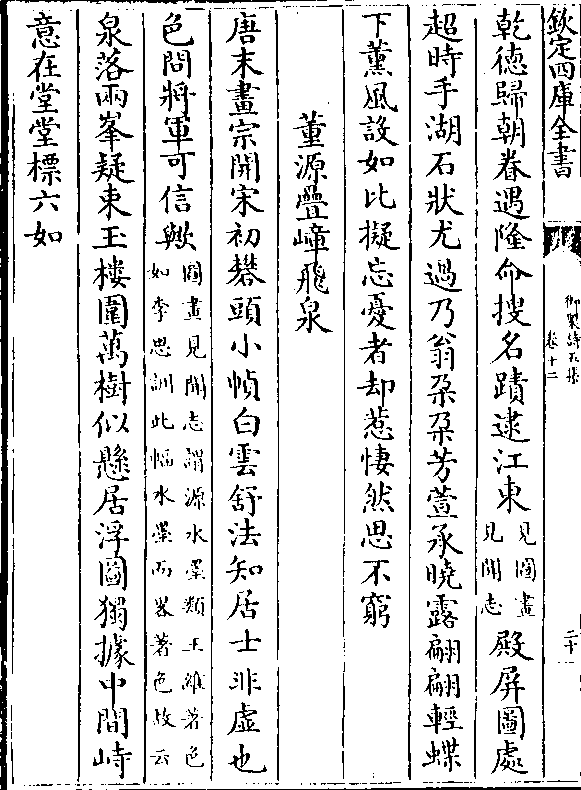 欽定四庫全書
御製詩五集
卷十二
二十
乾徳歸朝眷遇隆命搜名蹟逮江東見圖畫見聞志殿屏圖處
超時手湖石狀尤過乃翁朶朶芳萱承曉露翩翩輕蝶
下薰風設如比擬忘憂者却惹悽然思不窮
董源疊嶂飛泉
唐末畫宗開宋初礬頭小幀白雲舒法知居士非虚也
色問將軍可信歟圖畫見聞志謂源水墨類王維著色如李思訓此幅水墨而畧著色故云
泉落兩峯疑束玉樓圍萬樹似懸居浮圖獨據中間峙
意在堂堂標六如